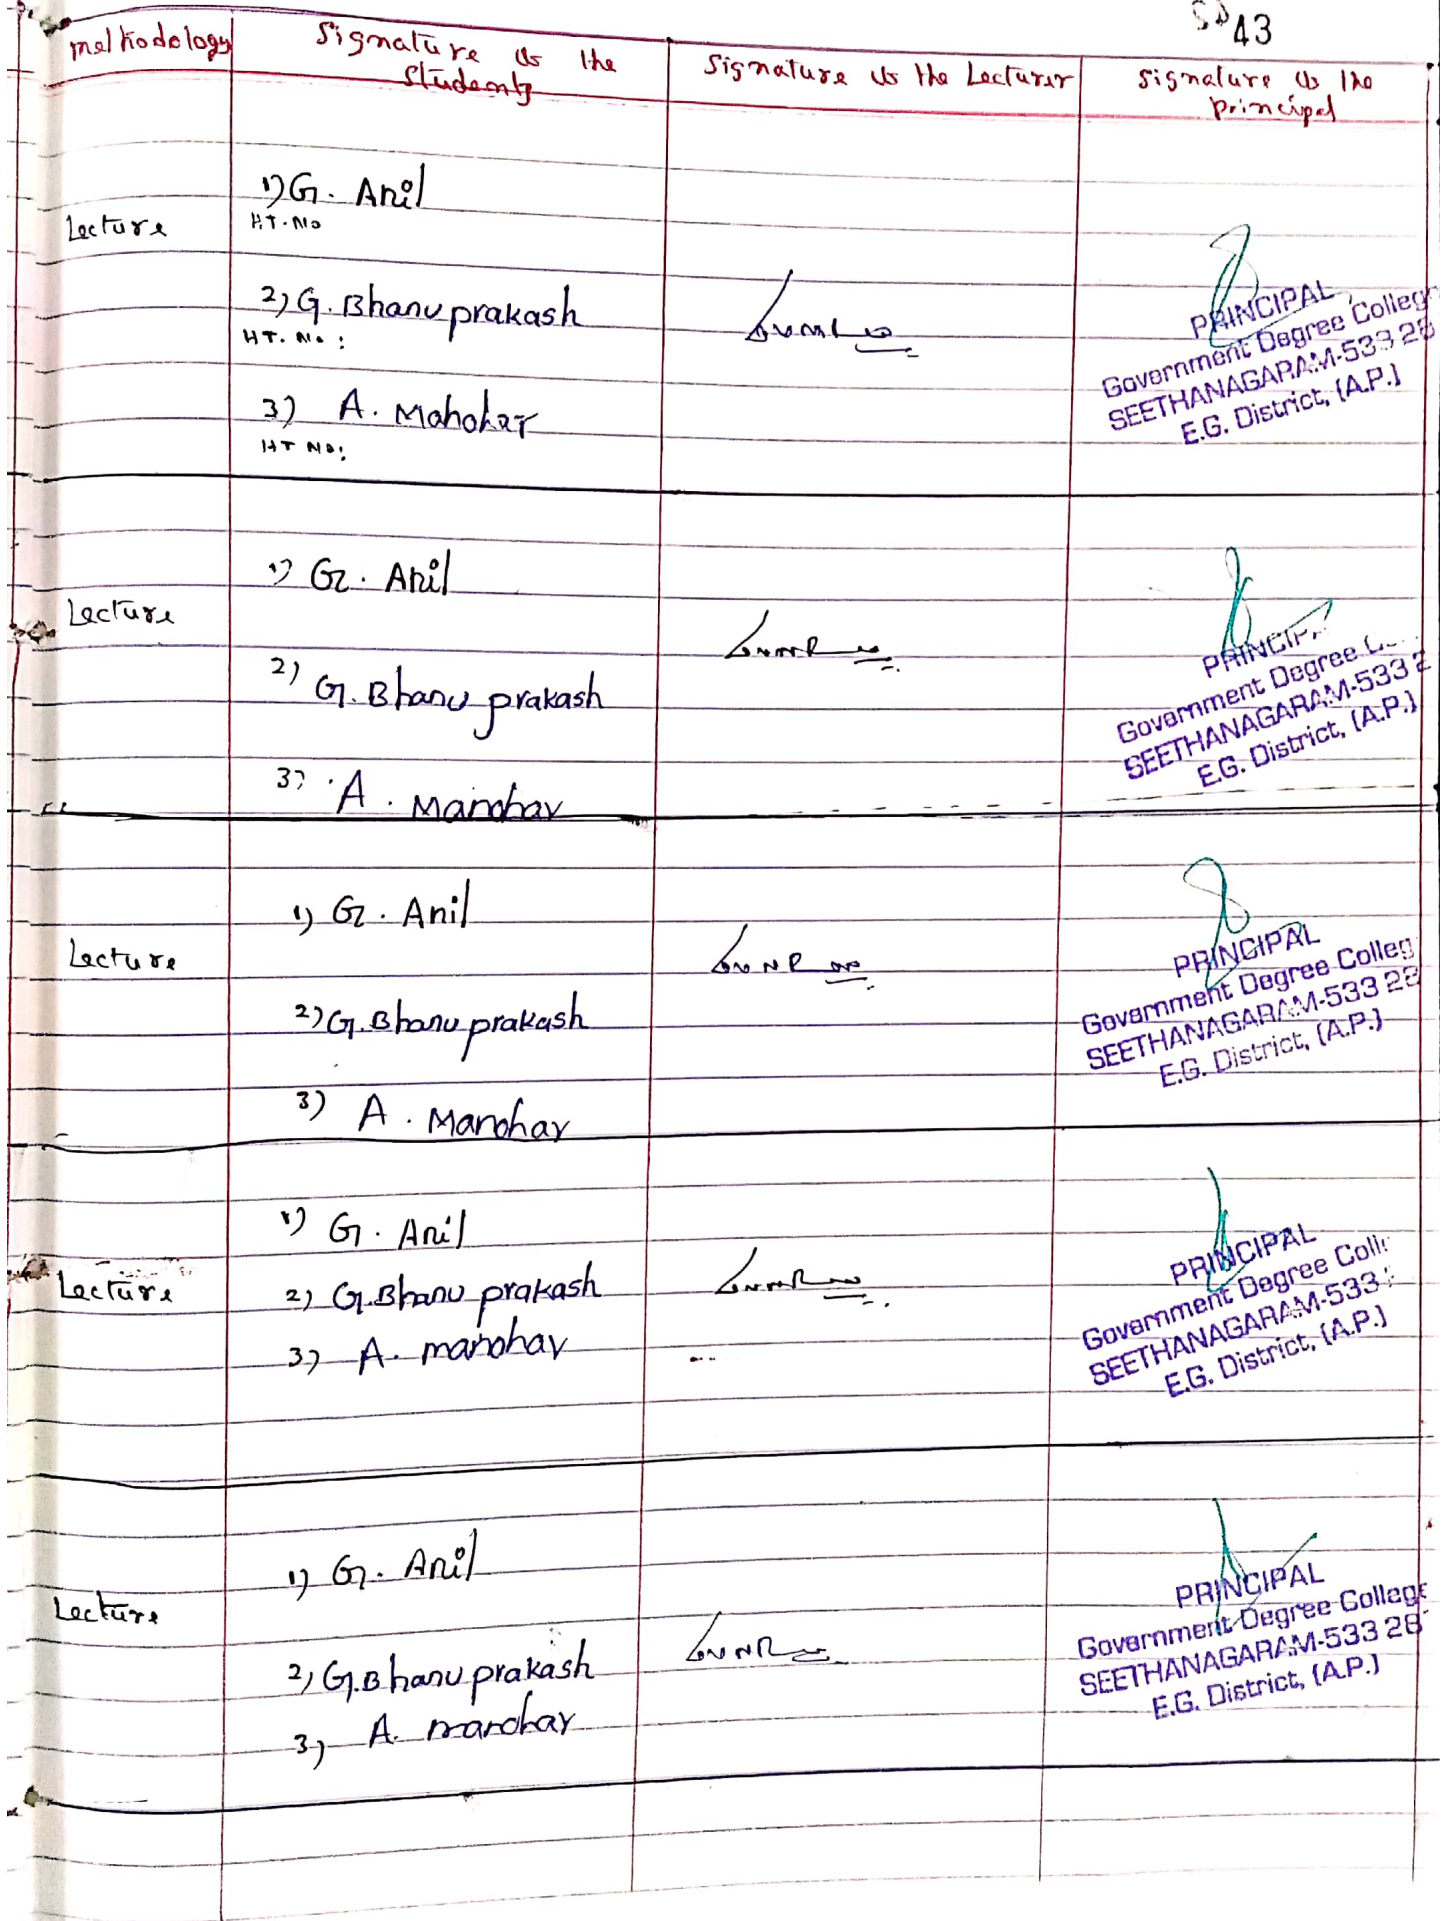 43
methodology
Signature of the
Students
Signature of the Lecturer
Signature of the
principal
Lecture
1) G. Anil
HT. No
2) G. Bhanu prakash
HT. No :
3) A. Manohar
HT No:
PRINCIPAL
Government Degree Colleg
SEETHANAGARAM-533 28
E.G. District, (A.P.)
Lecture
1) G. Anil
2) G. Bhanu prakash
3) A. Manohar
PRINCIPA
Government Degree C
SEETHANAGARAM-533 2
E.G. District, (A.P.)
Lecture
1) G. Anil
2) G. Bhanu prakash
3) A. Manohar
PRINCIPAL
Government Degree Colleg
SEETHANAGARAM-533 28
E.G. District, (A.P.)
Lecture
1) G. Anil
2) G. Bhanu prakash
3) A. manohar
PRINCIPAL
Government Degree Coll
SEETHANAGARAM-533
E.G. District, (A.P.)
Lecture
1) G. Anil
2) G. Bhanu prakash
3) A. manohar
PRINCIPAL
Government Degree College
SEETHANAGARAM-533 28
E.G. District, (A.P.)